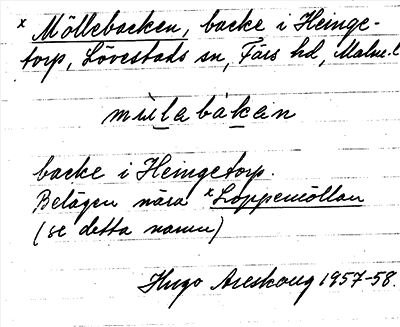 x Möllebacken, backe i Heinge-
torp, Lövestads sn, Färs hd, Malm. l
mùlabákan
backe i Heingetorp.
Belägen nära x Loppemöllan
(se detta namn)
Hugo Areskoug 1957-58.